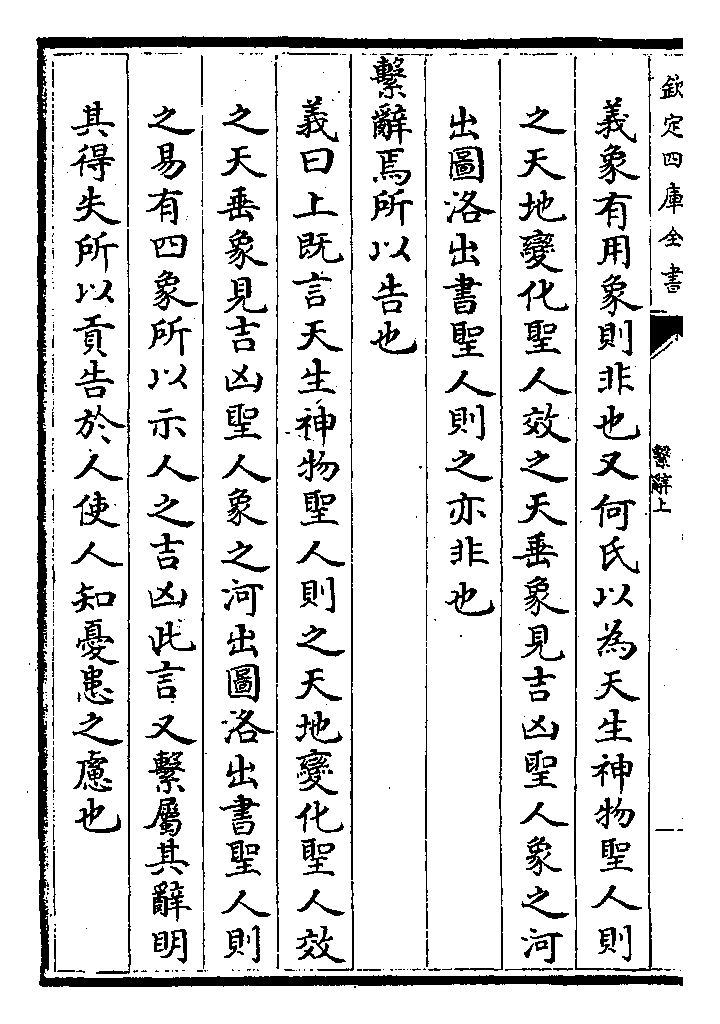 欽定四庫全書
繫辭上
義象有用象則非也又何氏以為天生神物聖人則
之天地變化聖人效之天垂象見吉凶聖人象之河
出圖洛出書聖人則之亦非也
繫辭焉所以告也
義曰上既言天生神物聖人則之天地變化聖人效
之天垂象見吉凶聖人象之河出圖洛出書聖人則
之易有四象所以示人之吉凶此言又繫屬其辭明
其得失所以貢告於人使人知憂患之慮也